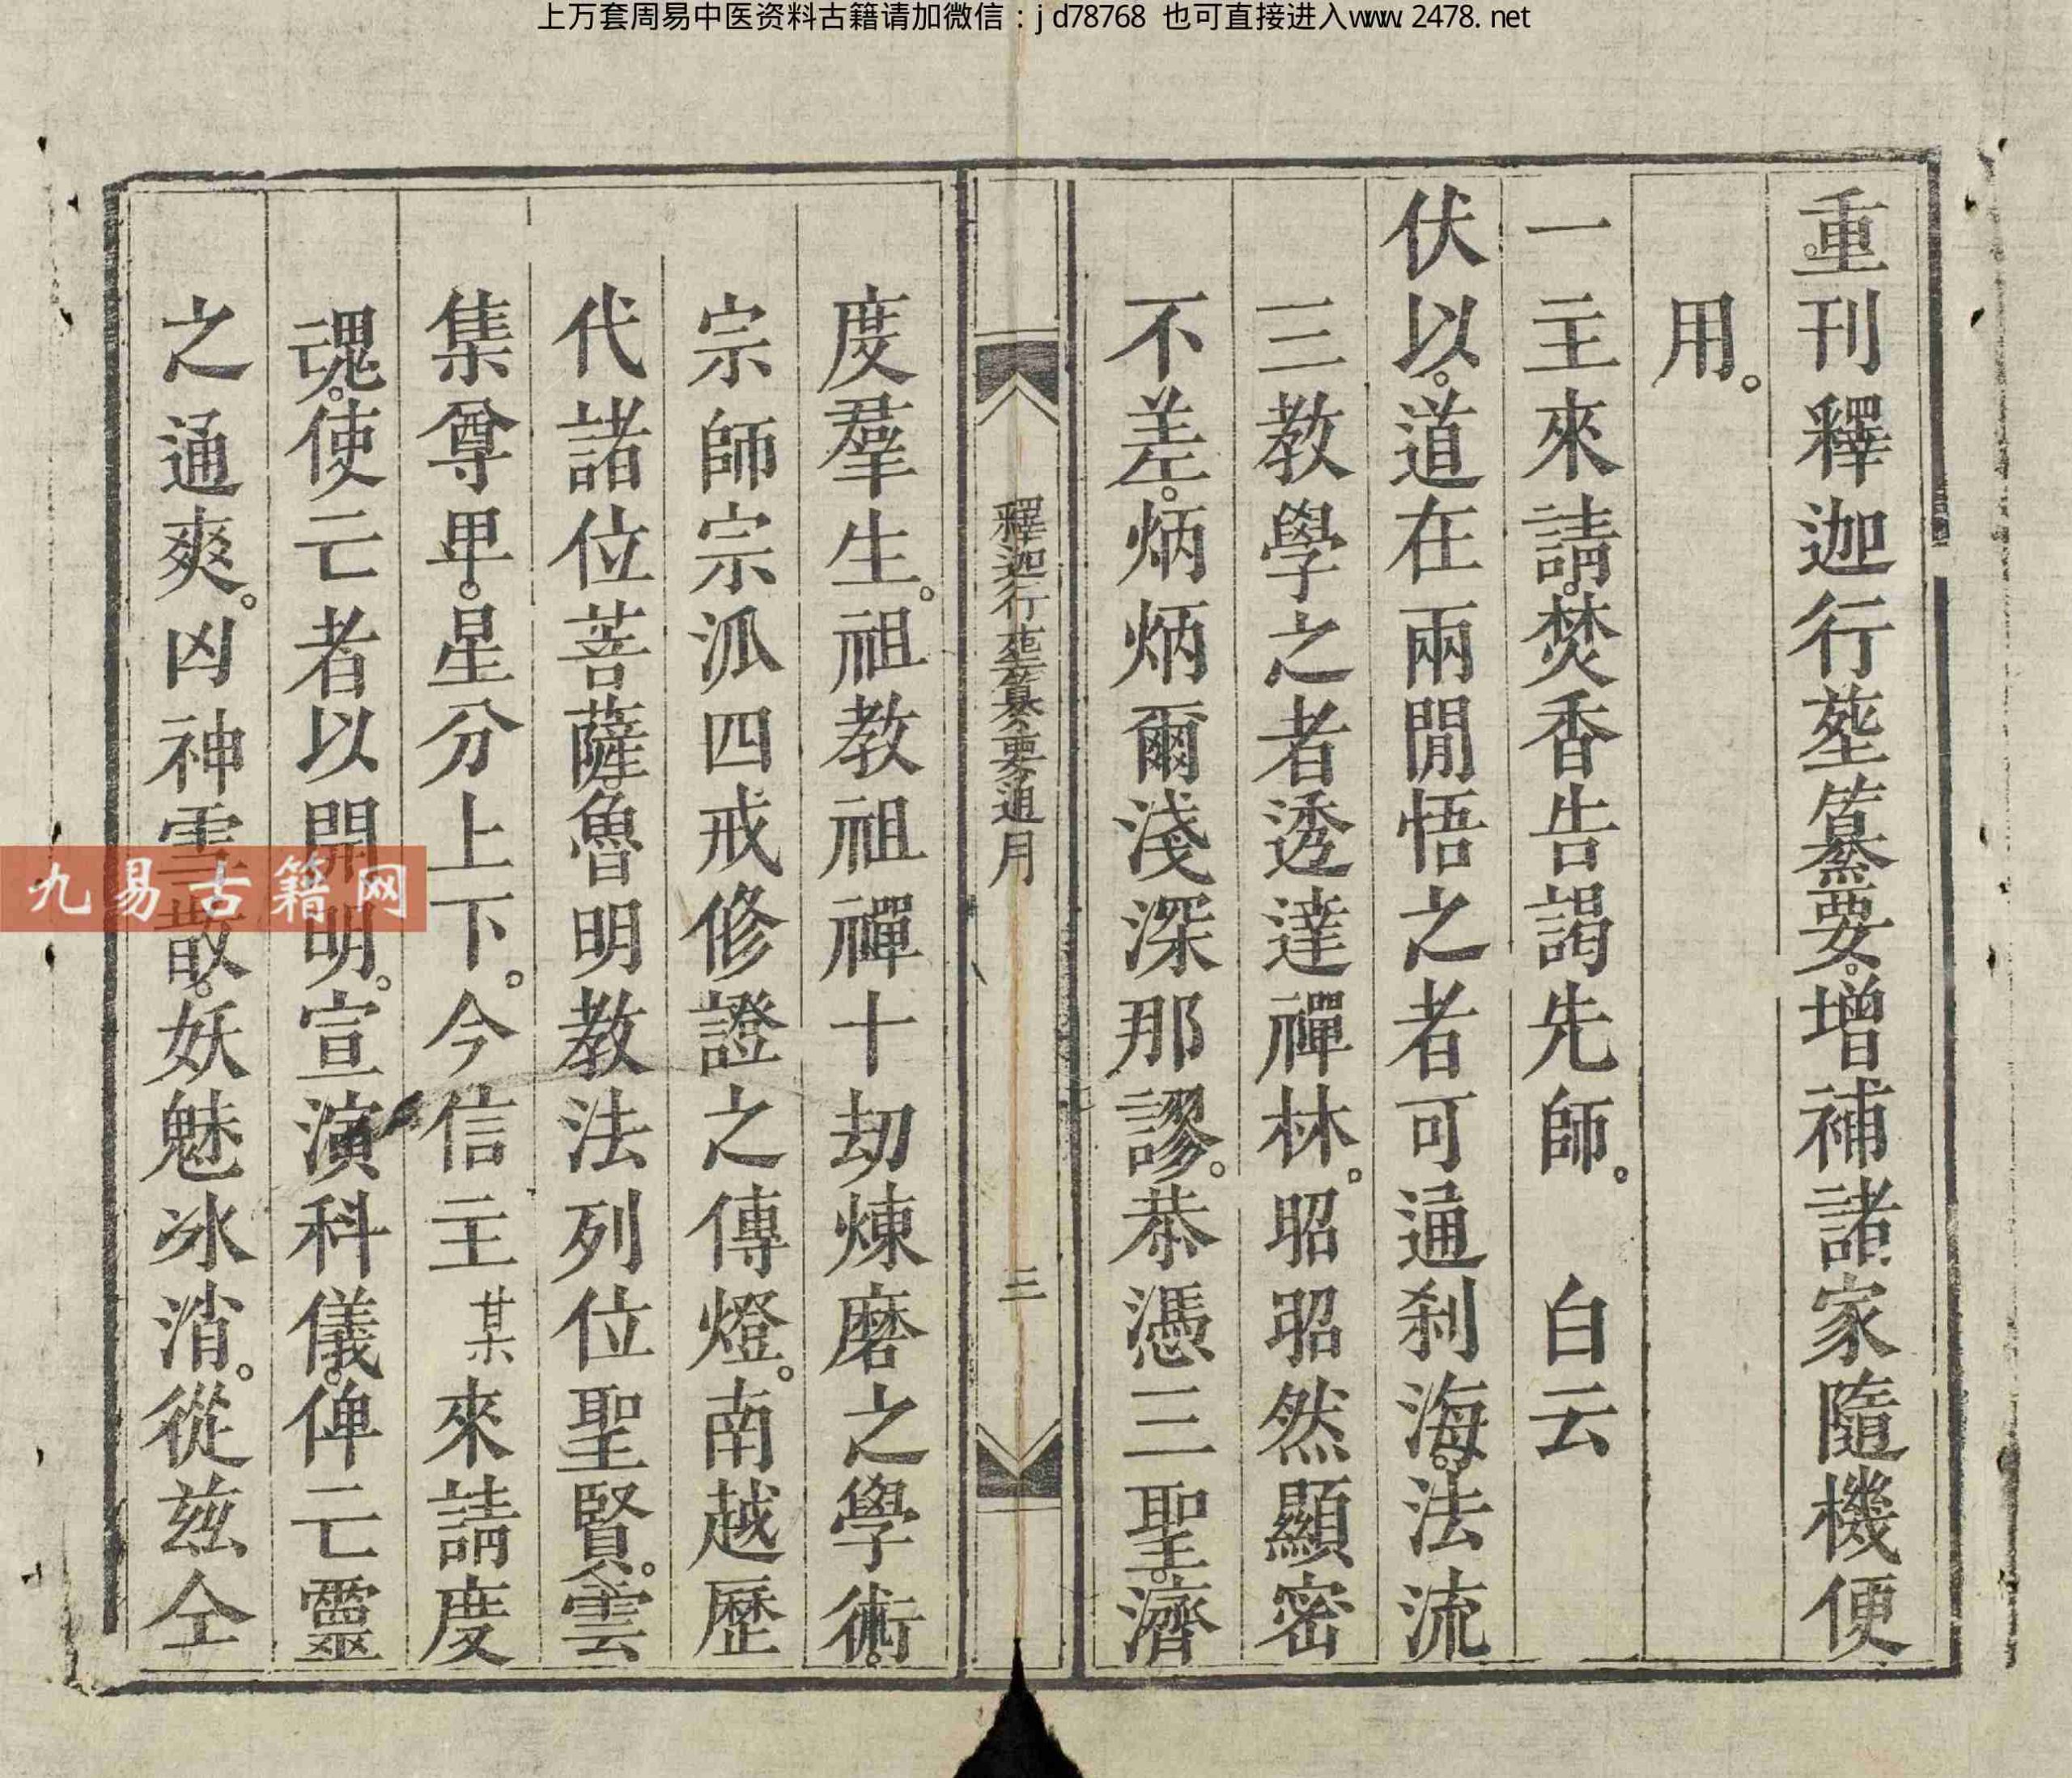 上万套周易中医资料古籍请加微信：jd78768 也可直接进入www.2478.net
重刊釋迦行塟纂要。增補諸家隨機便
用。
一主來請。焚香告謁先師。 白云
伏以。道在兩間悟之者可通刹海。法流
三教學之者透達禪林。昭昭然顯密
不差。炳炳爾淺深那謬。恭憑三聖。濟
釋迦行塟纂要通月
三
度羣生。祖教祖禪十劫煉磨之學術。
宗師宗派四戒修證之傳燈。南越歷
代諸位菩薩。魯明教法列位聖賢。雲
集尊卑。星分上下。今信主某來請度
魂。使亡者以開明。宣演科儀。俾亡靈
之通爽。凶神雪散。妖魅冰消。從茲仝
九易古籍网